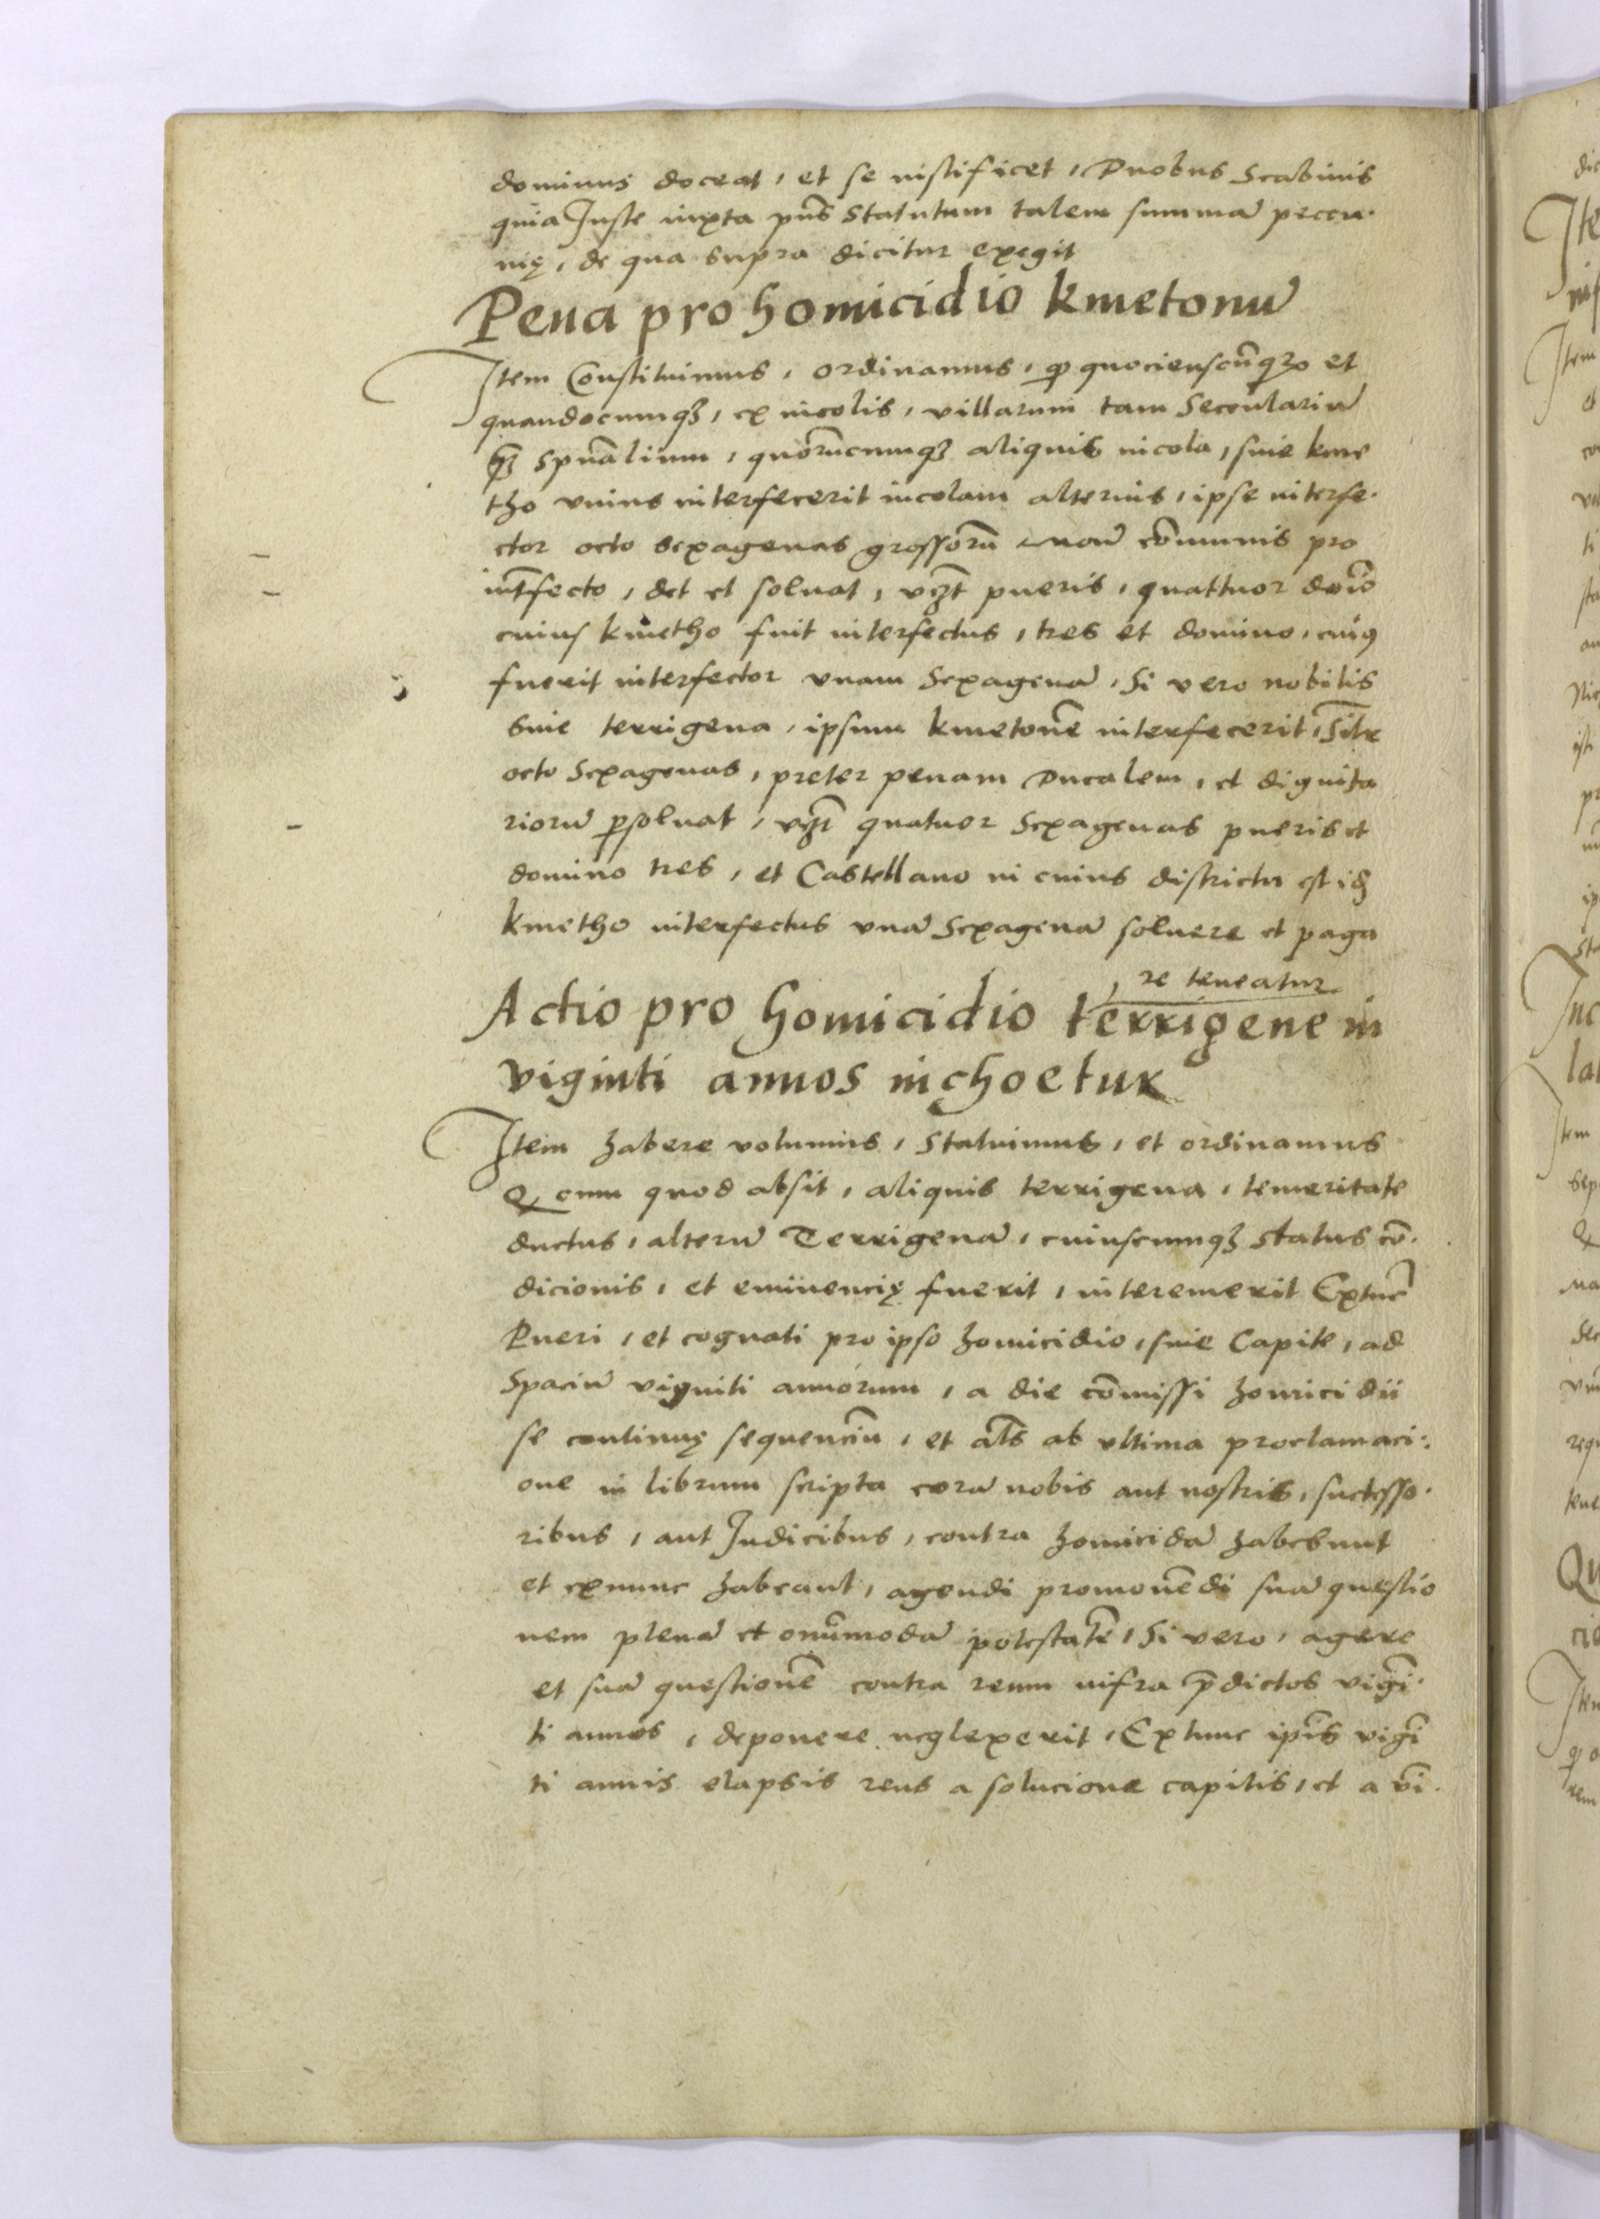 dominus doceat, et se iustificet, Duobus Scabinis
quia Juste iuxta pñs Statutum talem summā peccu-
nię, de qua supra dicitur exegit
Pena pro homicidio kmetonū
Item Constituimus, ordinamus, ꝙ quocienscūqꝫ et
quandocumqꝫ, ex incolis, villarum tam Seculariū
qꝫ spūalium, quorūcumqꝫ aliquis incola, siue kme
tho vnius interfecerit incolam alterius, ipse interfe-
ctor octo sexagenas grossorū communis pro
int̄fecto, det et soluat, vꝫt pueris, quattuor dōio
cuius kmetho fuit interfectus, tres et domino, cuiꝰ
fuerit interfector vnam Sexagenā, Si vero nobilis
siue terrigena, ipsum kmetonē interfecerit, Silr
octo Sexagenas, preter penam Ducalem, et dignita
riorū ꝑsoluat, vꝫt quatuor Sexagenas pueris et
domino tres, et Castellano in cuius districtu est idꝫ
kmetho interfectus vnā Sexagenā soluere et paga
re teneatur
Actio pro homicidio terrigene in
viginti annos inchoetur
Item habere volumus, Statuimus, et ordinamus
Q cum quod absit, aliquis terrigena, temeritate
ductus, alterū Terrigenā, cuiuscumqꝫ status cō-
dicionis, et eminencię fuerit, interemerit Extūc
Pueri, et cognati pro ipso homicidio, siue Capite, ad
Spaciū viginti annorum, a die cōmissi homicidii
se continuę sequenciū, et als ab vltima proclamaci-
one in librum scripta corā nobis aut nostris, successo-
ribus, aut Judicibus, contra homicidā habebunt
et exnunc habeant, agendi promouēdi suā questio
nem plenā et omnimodā potestatē, Si vero, agere
et suā questionē contra reum infra p̄dictos vigī-
ti annos, deponere neglexerit, Extunc ip̄is vigī
ti annis elapsis reus a solucione capitis, et a vī-